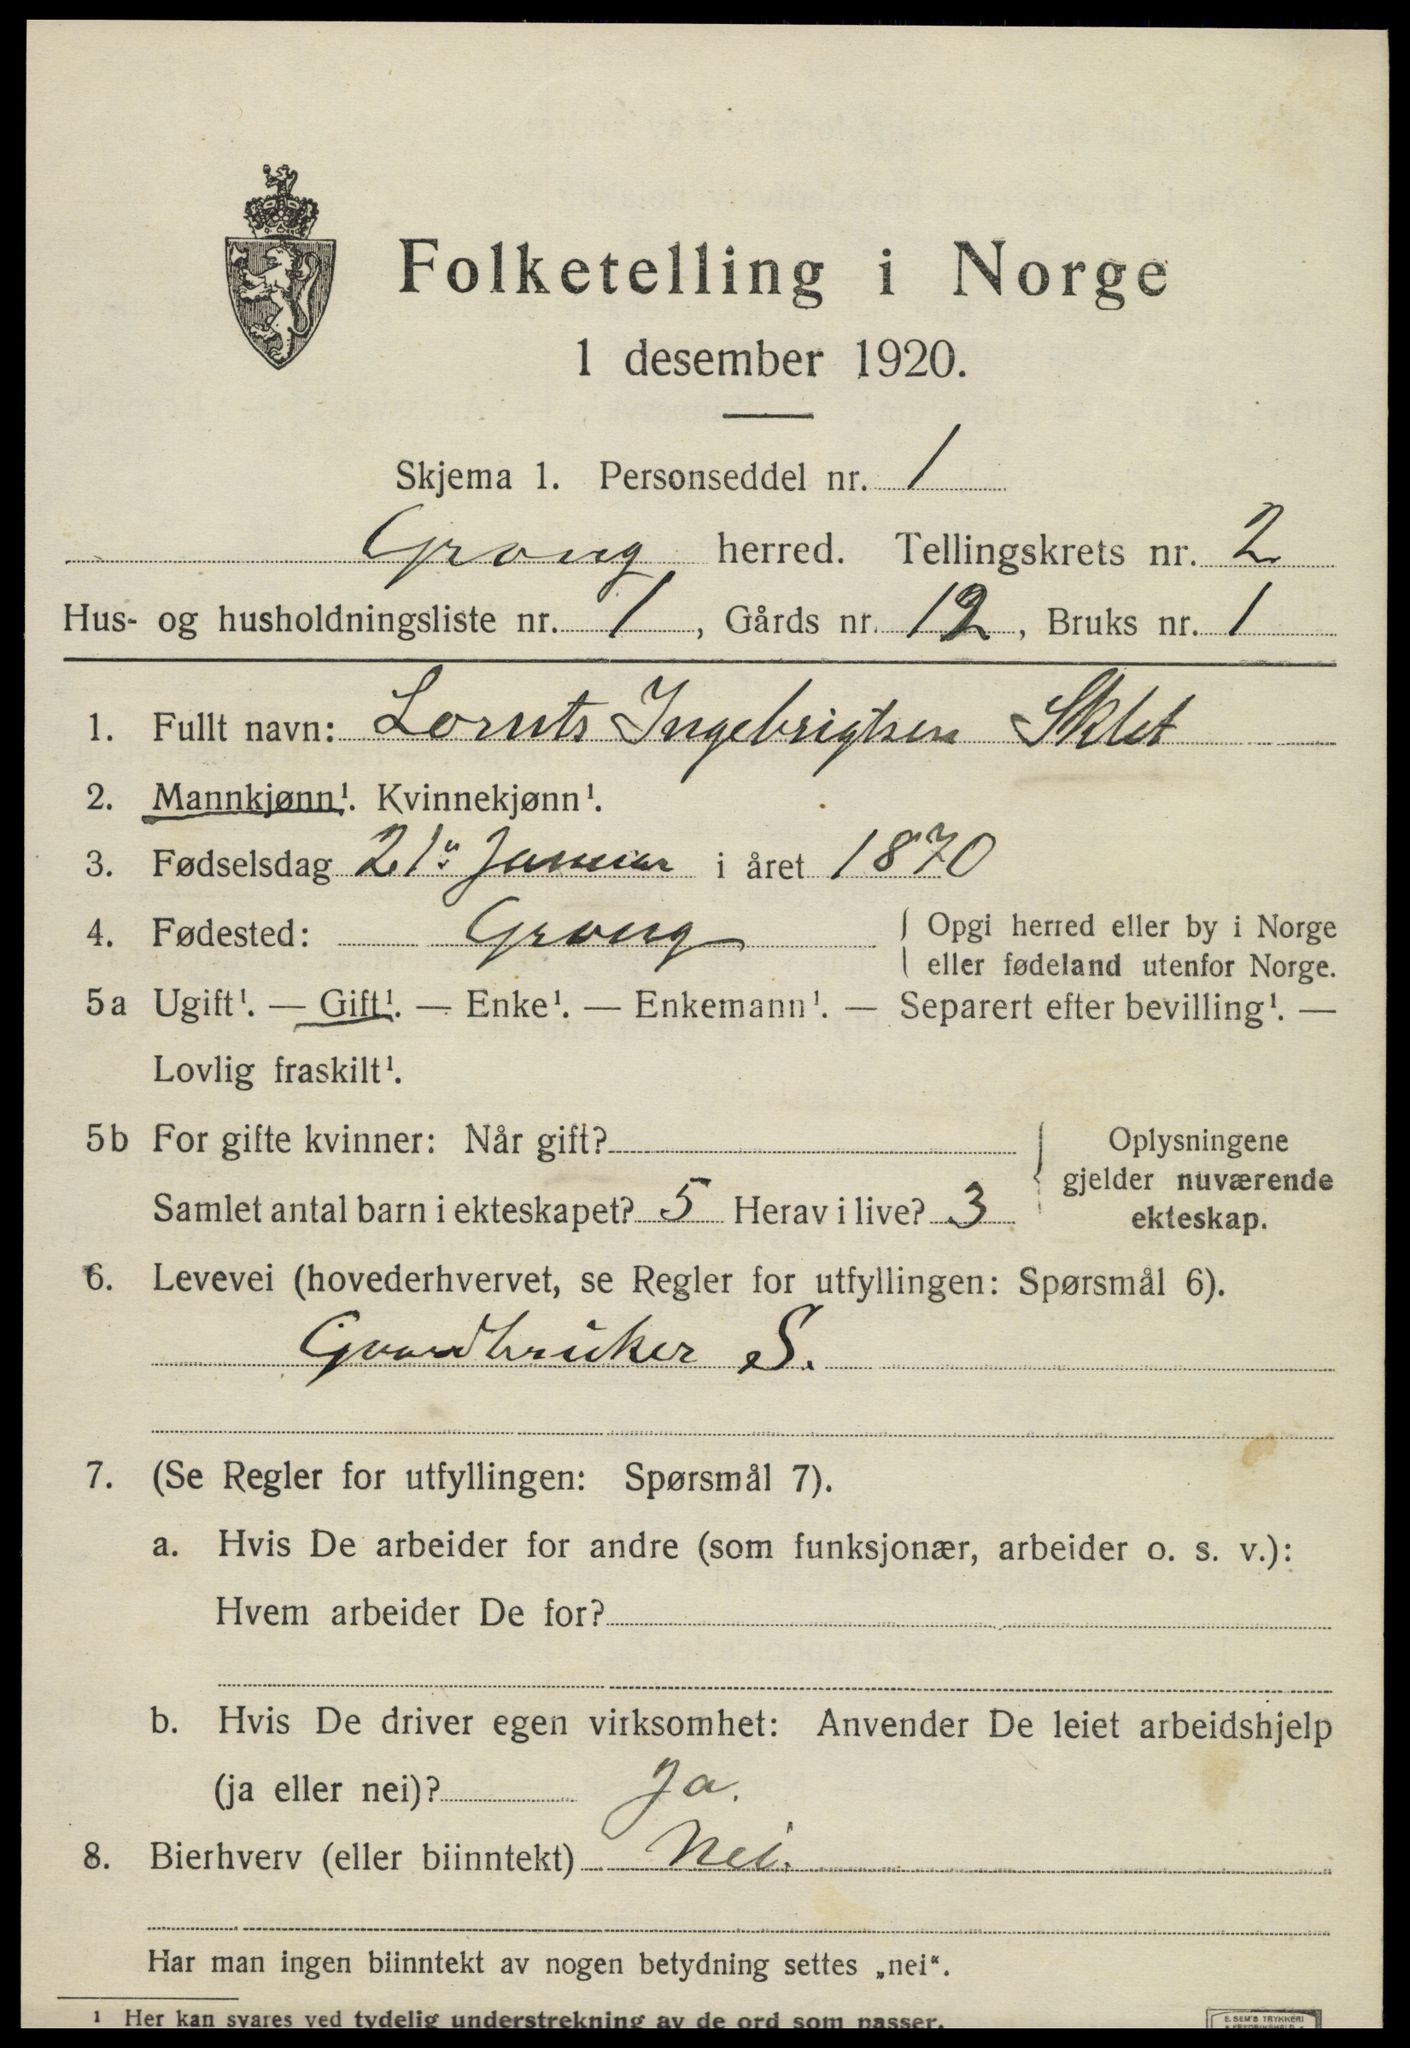 Folketelling i Norge
1 desember 1920.
Skjema 1. Personseddel nr. 1
Grong herred. Tellingskrets nr. 2
Hus- og husholdningsliste nr. 1, Gårds nr. 12, Bruks nr. 1
1. Fullt navn: Lornts Ingebrigtsen Sklet
2. Mannkjønn¹. Kvinnekjønn¹.
3. Fødselsdag 21de Januar i året 1870
4. Fødested: Grong { Opgi herred eller by i Norge
eller fødeland utenfor Norge.
5a Ugift¹. — Gift¹. — Enke¹. — Enkemann¹. — Separert efter bevilling¹. —
Lovlig fraskilt¹.
5b For gifte kvinner: Når gift?
Samlet antal barn i ekteskapet? 5 Herav i live? 3
Oplysningene
gjelder nuværende
ekteskap.
6. Levevei (hovederhvervet, se Regler for utfyllingen: Spørsmål 6).
Gaardbruker S.
7. (Se Regler for utfyllingen: Spørsmål 7).
a. Hvis De arbeider for andre (som funksjonær, arbeider o. s. v.):
Hvem arbeider De for?
b. Hvis De driver egen virksomhet: Anvender De leiet arbeidshjelp
(ja eller nei)? Ja.
8. Bierhverv (eller biinntekt) Nei.
Har man ingen biinntekt av nogen betydning settes „nei“.
¹ Her kan svares ved tydelig understrekning av de ord som passer.
E. SEM'S TRYKKERI
FREDRIKSHALD